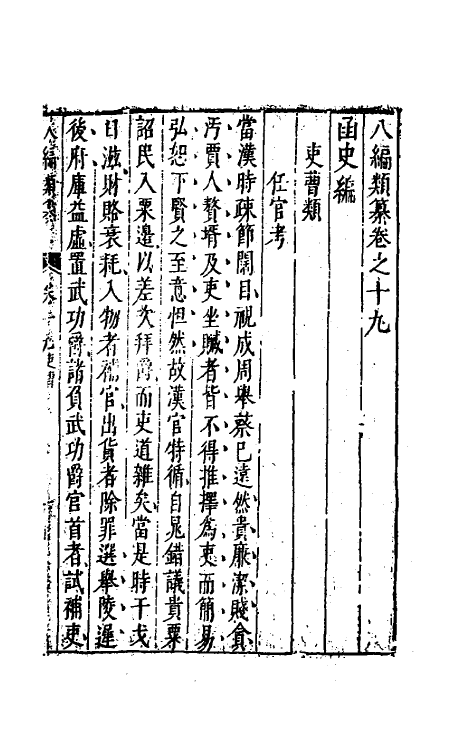 八編類纂卷之十九
函史編
吏曹類
任官考
當漢時疎節闊目視成周舉蔡已遠然貴廉潔賤貪
汚賈人贅壻及吏坐贓者皆不得推擇爲吏而簡易
弘恕下賢之至意怛然故漢官特循自晁錯議貴粟
詔民入粟邊以差次拜爵而吏道雜矣當是時干戈
日滋財賂衰耗入物者補官出貨者除罪選舉陵遲
後府庫益虛置武功爵諸負武功爵官首者試補吏
八編類纂